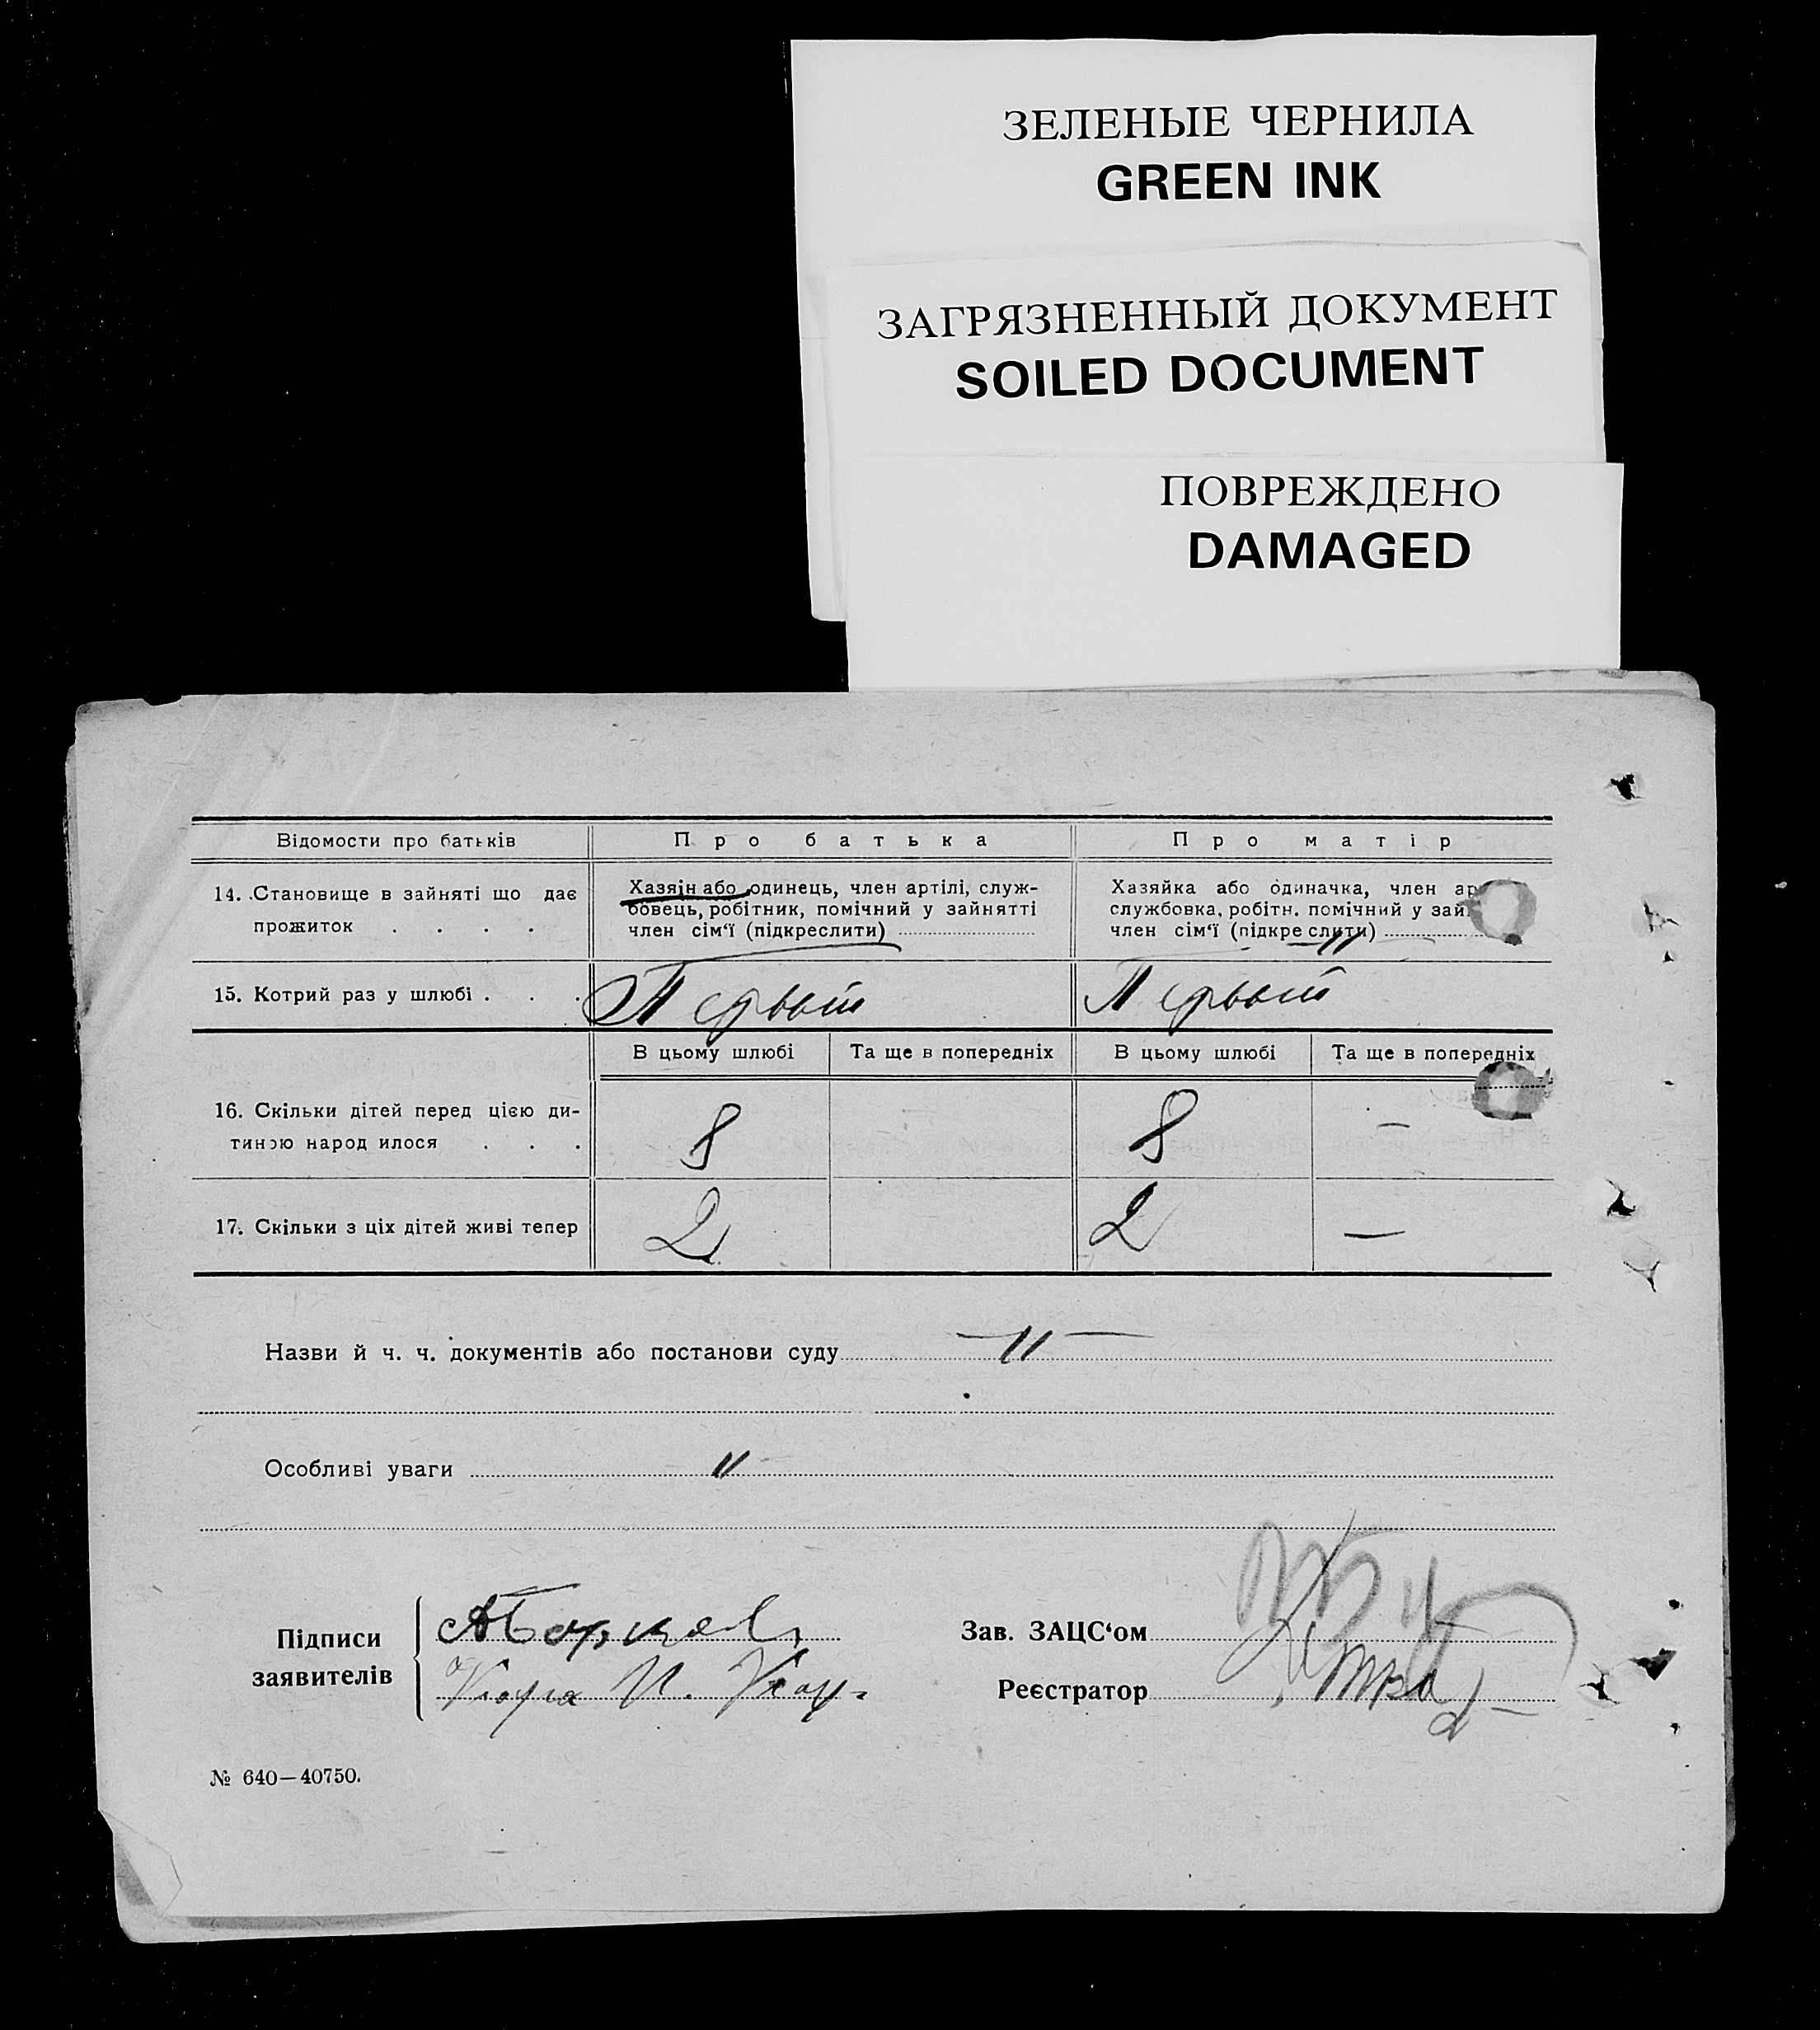 ЗЕЛЕНЫЕ ЧЕРНИЛА
GREEN INK
ЗАГРЯЗНЕННЫЙ ДОКУМЕНТ
SOILED DOCUMENT
ПОВРЕЖДЕНО
DAMAGED
Відомости про батьків Про батька Про матір
14. Становище в зайняті що дає прожиток . . . .
Хазяін або одинець, член артілі, служ-
бовець, робітник, помічний у зайнятті
член сім‘ї (підкреслити)
Хазяйка або одиначка, член ар
службовка, робітн. помічний у зай.
член сім‘ї (підкре слити) —11—
15. Котрий раз у шлюбі . . . Первый Первый
В цьому шлюбі Та ще в попередніх В цьому шлюбі Та ще в попередніх
16. Скільки дітей перед цією ди-
тиною народ илося . . . 8 8 —
17. Скільки з ціх дітей живі тепер 2 2 —
Назви й ч. ч. документів або постанови суду —11—
Особливі уваги 11
Підписи
заявителів
Зав. ЗАЦС‘ом
Реєстратор
№ 640—40750.